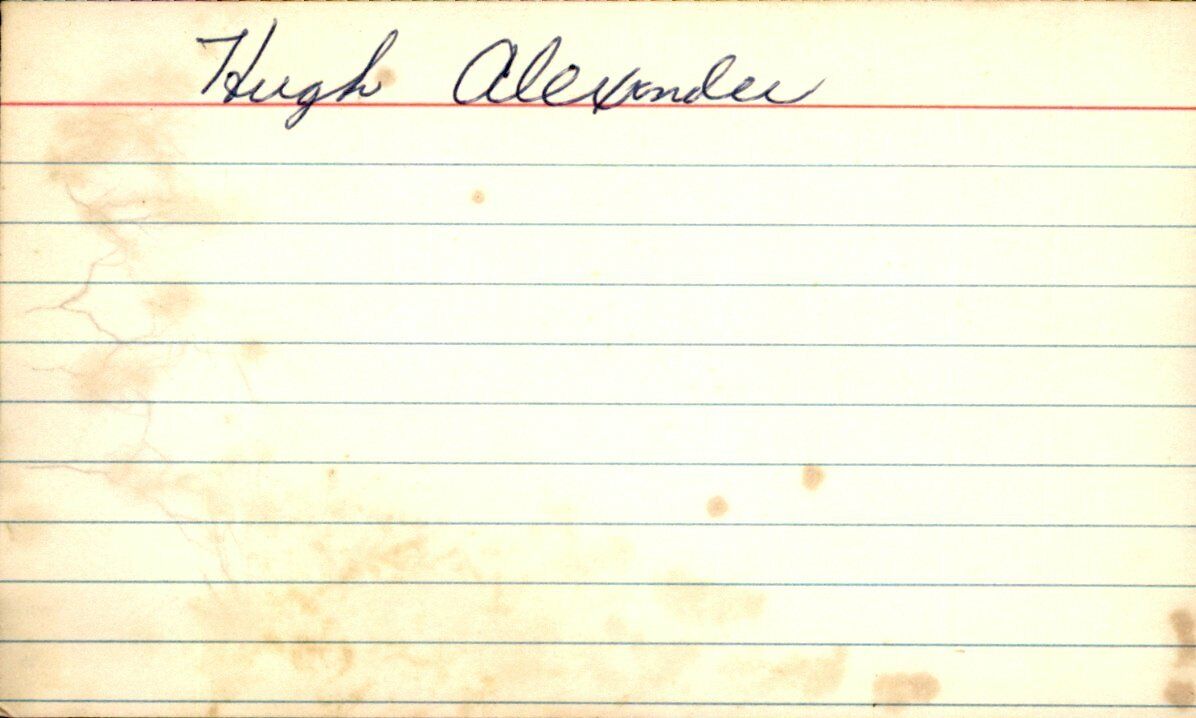 Hugh Alexander